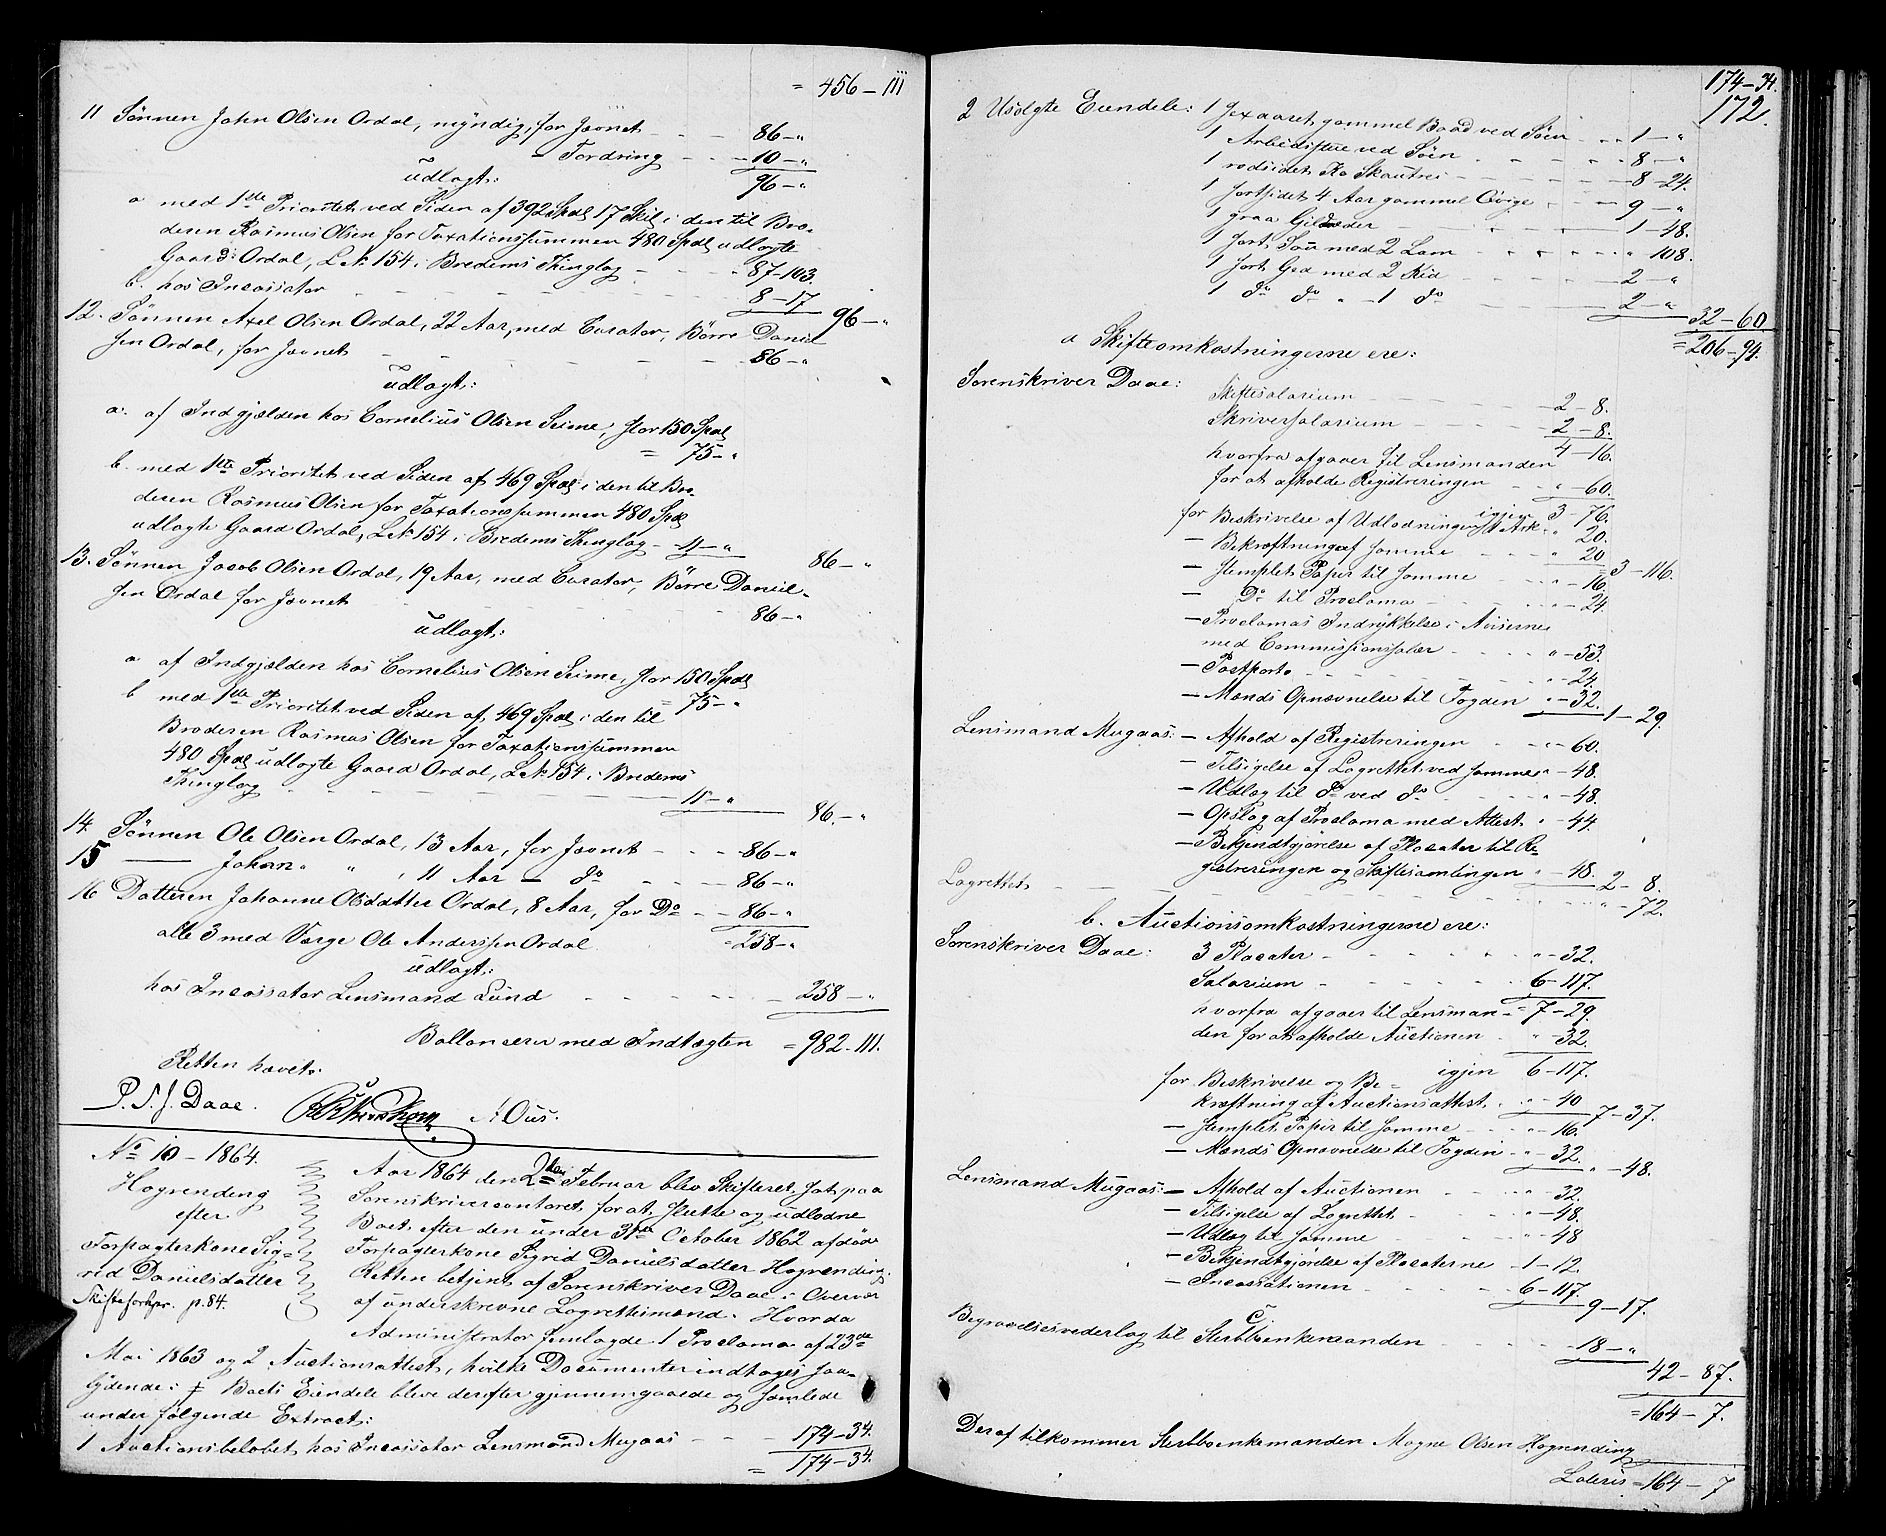 = 456 – 111
11 Sønnen John Olsen Ordal, myndig, for Jevnet - - - 86 – "
– Fordring - - - 10 – "
udlagt: 96 – "
a med 1ste Prioritet ved Siden af 392 Spdl 17 Skil i den til Bro-
deren Rasmus Olsen for Taxationssummen 480 Spdl udlagte
Gaard Ordal, L.N. 154 i Bredems Thinglag - - - 87 – 103.
b. hos Incassator - - - 8 – 17 96 – "
12. Sønnen Axel Olsen Ordal, 22 Aar, med Curator, Børre Daniel
sen Ordal, for Jevnet - - - 86 – "
udlagt:
a. af Indgjælden hos Cornelius Olsen Seime, stor 150 Spdl
= 75 – "
b. med 1ste Prioritet ved Siden af 469 Spdl i den til Bro-
deren Rasmus Olsen for Taxationssummen 480 Spdl
udlagte Gaard Ordal, L.N. 154 i Bredems Thinglag – 11 – " 86 – "
13. Sønnen Jacob Olsen Ordal, 19 Aar, med Curator, Børre Daniel-
sen Ordal for Jevnet - - - 86 – "
udlagt:
a af Indgjælden hos Cornelius Olsen Seime, stor 150 Spdl
= 75 – "
b med 1ste Prioritet ved Siden af 469 Spdl i den til
Broderen Rasmus Olsen for Taxationssummen
480 Spdl udlagte Gaard Ordal, L.N. 154 i Bredems
Thinglag - - - 11 – " 86. – "
14. Sønnen Ole Olsen Ordal, 13 Aar, for Jevnet - - - 86 – "
15 — Johan " " , 11 Aar – do - - - 86 – "
16 Datteren Johanne Olsdatter Ordal, 8 Aar, for Do - - 86 – "
alle 3 med Værge Ole Anderssen Ordal = 258 – "
udlagt:
hos Incassator Lensmand Lund - - - 258 – "
Ballancerer med Indtægten = 982 – 111.
Retten hævet.
P. N. J. Daae. A Ous.
No 10 – 1864.
Høgrending
efter
Forpagterkone Sig-
rid Danielsdatter
Skifteforhpr. p. 84.
Aar 1864 den 2den Februar blev Skifteret sat paa
Sorenskrivercontoret for at slutte og udlodne
Boet efter den under 31te October 1862 afdøde
Forpagterkone Sigrid Danielsdatter Høgrending.
Retten betjent af Sorenskriver Daae i Overvær
af underskrevne Lagrettesmænd. Hvorda
Administrator fremlagde 1 Proclama af 23de
Mai 1863 og 2 Auctionsattest, hvilke Documenter indtages saa-
lydende: ╪ Boets Eiendele bleve derefter gjennemgaaede og samlede
under følgende Extract:
1 Auctionsbeløbet hos Incassator Lensmand Mugaas - - - 174 – 34.
= 174 – 34.
174 – 34.
172.
2 Usolgte Eiendele: 1 sexaaret gammel Baad ved Søen - - 1 – "
1 Arbeidsstue ved Søen - - - 8 – "
1 rødsidet Ko Skautrei - - - 8 – 24.
1 sortsidet 4 Aar gammel Qvige - - - 9 – "
1 graa Gildveder - - - 1 – 48.
1 sort Sau med 2 Lam - - - " 108.
1 sort Ged med 2 Kid - - - 2 – "
1 do do " – 1 do - - - 2 – " 32 – 60.
= 206 – 94.
a Skifteomkostningerne ere:
Sorenskriver Daae: Skiftesalarium - - - 2 – 8.
Skriversalarium - - - 2 – 8.
4 – 16.
hvorfra afgaaer til Lensmanden
for at afholde Registreringen - " – 60.
igjen 3 – 76.
for Beskrivelse af Udlodningen 1 Ark " 20.
– Bekræftning af samme - - - " 20 3 – 116.
– stemplet Papir til samme - - - " – 16.
– Do til Proclama - - - " – 24
– Proclamas Indrykkelse i Aviserne
med Commissionssalær - - - " – 53.
– Postporto - - - " – 24.
– Mænds Opnævnelse til Fogden " – 32. 1 – 29.
Lensmand Mugaas: – Afhold af Registreringen - - " – 60.
– Tilsigelse af Lagrettet ved samme " – 48.
– Udlæg til do ved do - - - " – 48.
– Opslag af Proclama med Attest " – 44.
– Bekjendtgjørelse af Placater til Re-
gistreringen og Skiftesamlingen " – 48. 2 – 8.
Lagrettet - - - " – 72.
b. Auctionsomkostningerne ere:
Sorenskriver Daae: 3 Placater - - - " – 32.
Salarium - - - 6 – 117.
= 7 – 29.
hvorfra afgaaer til Lensman-
den for at afholde Auctionen - " – 32.
igjen 6 – 117.
for Beskrivelse og Be-
kræftning af Auctionsattest. " – 40 7 – 37.
– stemplet Papir til samme - - - " – 16.
– Mænds Opnævnelse til Fogden " – 32. " – 48.
Lensmand Mugaas: – Afhold af Auctionen - - - " – 32.
– Tilsigelse af Lagrettet - - - " – 48.
– Udlæg til samme - - - " – 48
– Bekjendtgjørelse af Placaterne - 1 – 12.
– Incassationen - - - 6 – 117. 9 – 17.
c.
Begravelsesvederlag til Sterbboenkemanden - - - 18 – "
42 – 87.
= 164 – 7.
Deraf tilkommer Sterbboenkemanden Mogne Olsen Høgrending
Lateris = 164 – 7